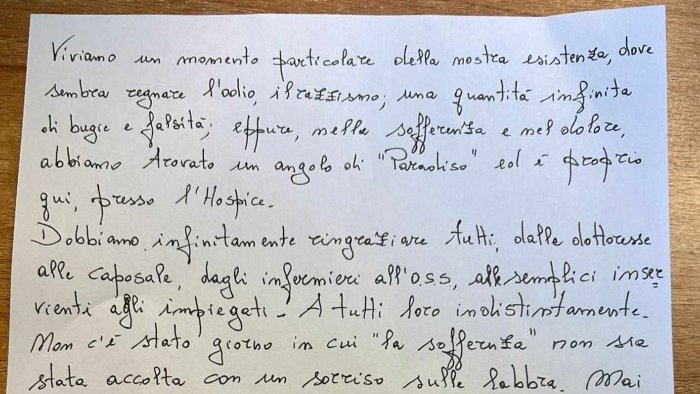 Viviamo un momento particolare della nostra esistenza, dove
sembra regnare l'odio, il razzismo; una quantità infinita
di bugie e falsità; eppure, nella sofferenza e nel dolore,
abbiamo trovato un angolo di "Paradiso" ed è proprio
qui, presso l'Hospice.
Dobbiamo infinitamente ringraziare tutti, dalle dottoresse
alle caposale, dagli infermieri all'O.S.S, alle semplici inser
vienti agli impiegati - A tutti loro indistintamente.
Non c'è stato giorno in cui "la sofferenza" non sia
stata accolta con un sorriso sulle labbra. Mai